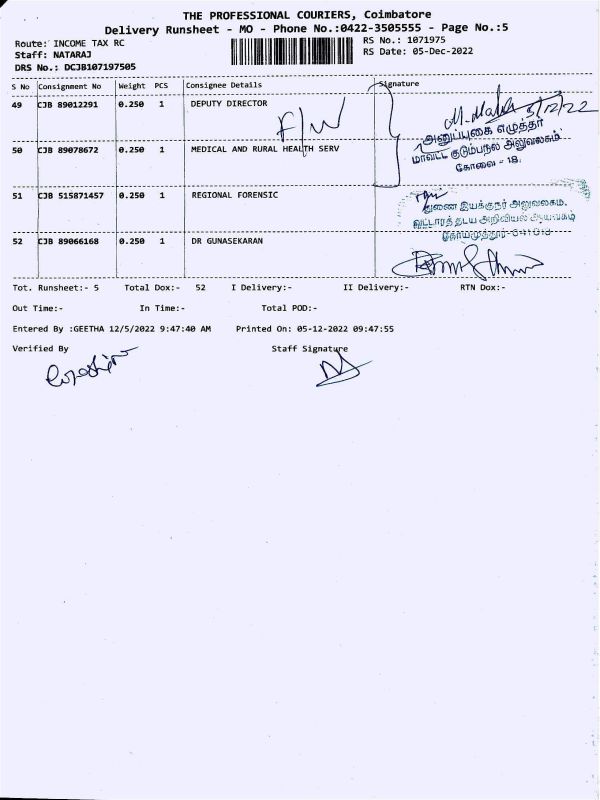 THE PROFESSIONAL COURIERS, Coimbatore
Delivery Runsheet - MO - Phone No.:0422-3505555 - Page No.:5
Route: INCOME TAX RC
RS No.: 1071975
Staff: NATARAJ
RS Date: 05-Dec-2022
DRS No.: DCJB107197505
S No Consignment No Weight PCS Consignee Details Signature
49 CJB 89012291 0.250 1 DEPUTY DIRECTOR
F/W
5/12/22
அனுப்புகை எழுத்தர்
50 CJB 89078672 0.250 1 MEDICAL AND RURAL HEALTH SERV
மாவட்ட குடும்பநல அலுவலகம்
கோவை - 18.
51 CJB 515871457 0.250 1 REGIONAL FORENSIC
துணை இயக்குநர் அலுவலகம்.
வட்டாரத் தடய அறிவியல் ஆய்வகம்
52 CJB 89066168 0.250 1 DR GUNASEKARAN
கோயமுத்தூர்-641018
Tot. Runsheet:- 5 Total Dox:- 52 I Delivery:- II Delivery:- RTN Dox:-
Out Time:- In Time:- Total POD:-
Entered By :GEETHA 12/5/2022 9:47:40 AM Printed On: 05-12-2022 09:47:55
Verified By Staff Signature